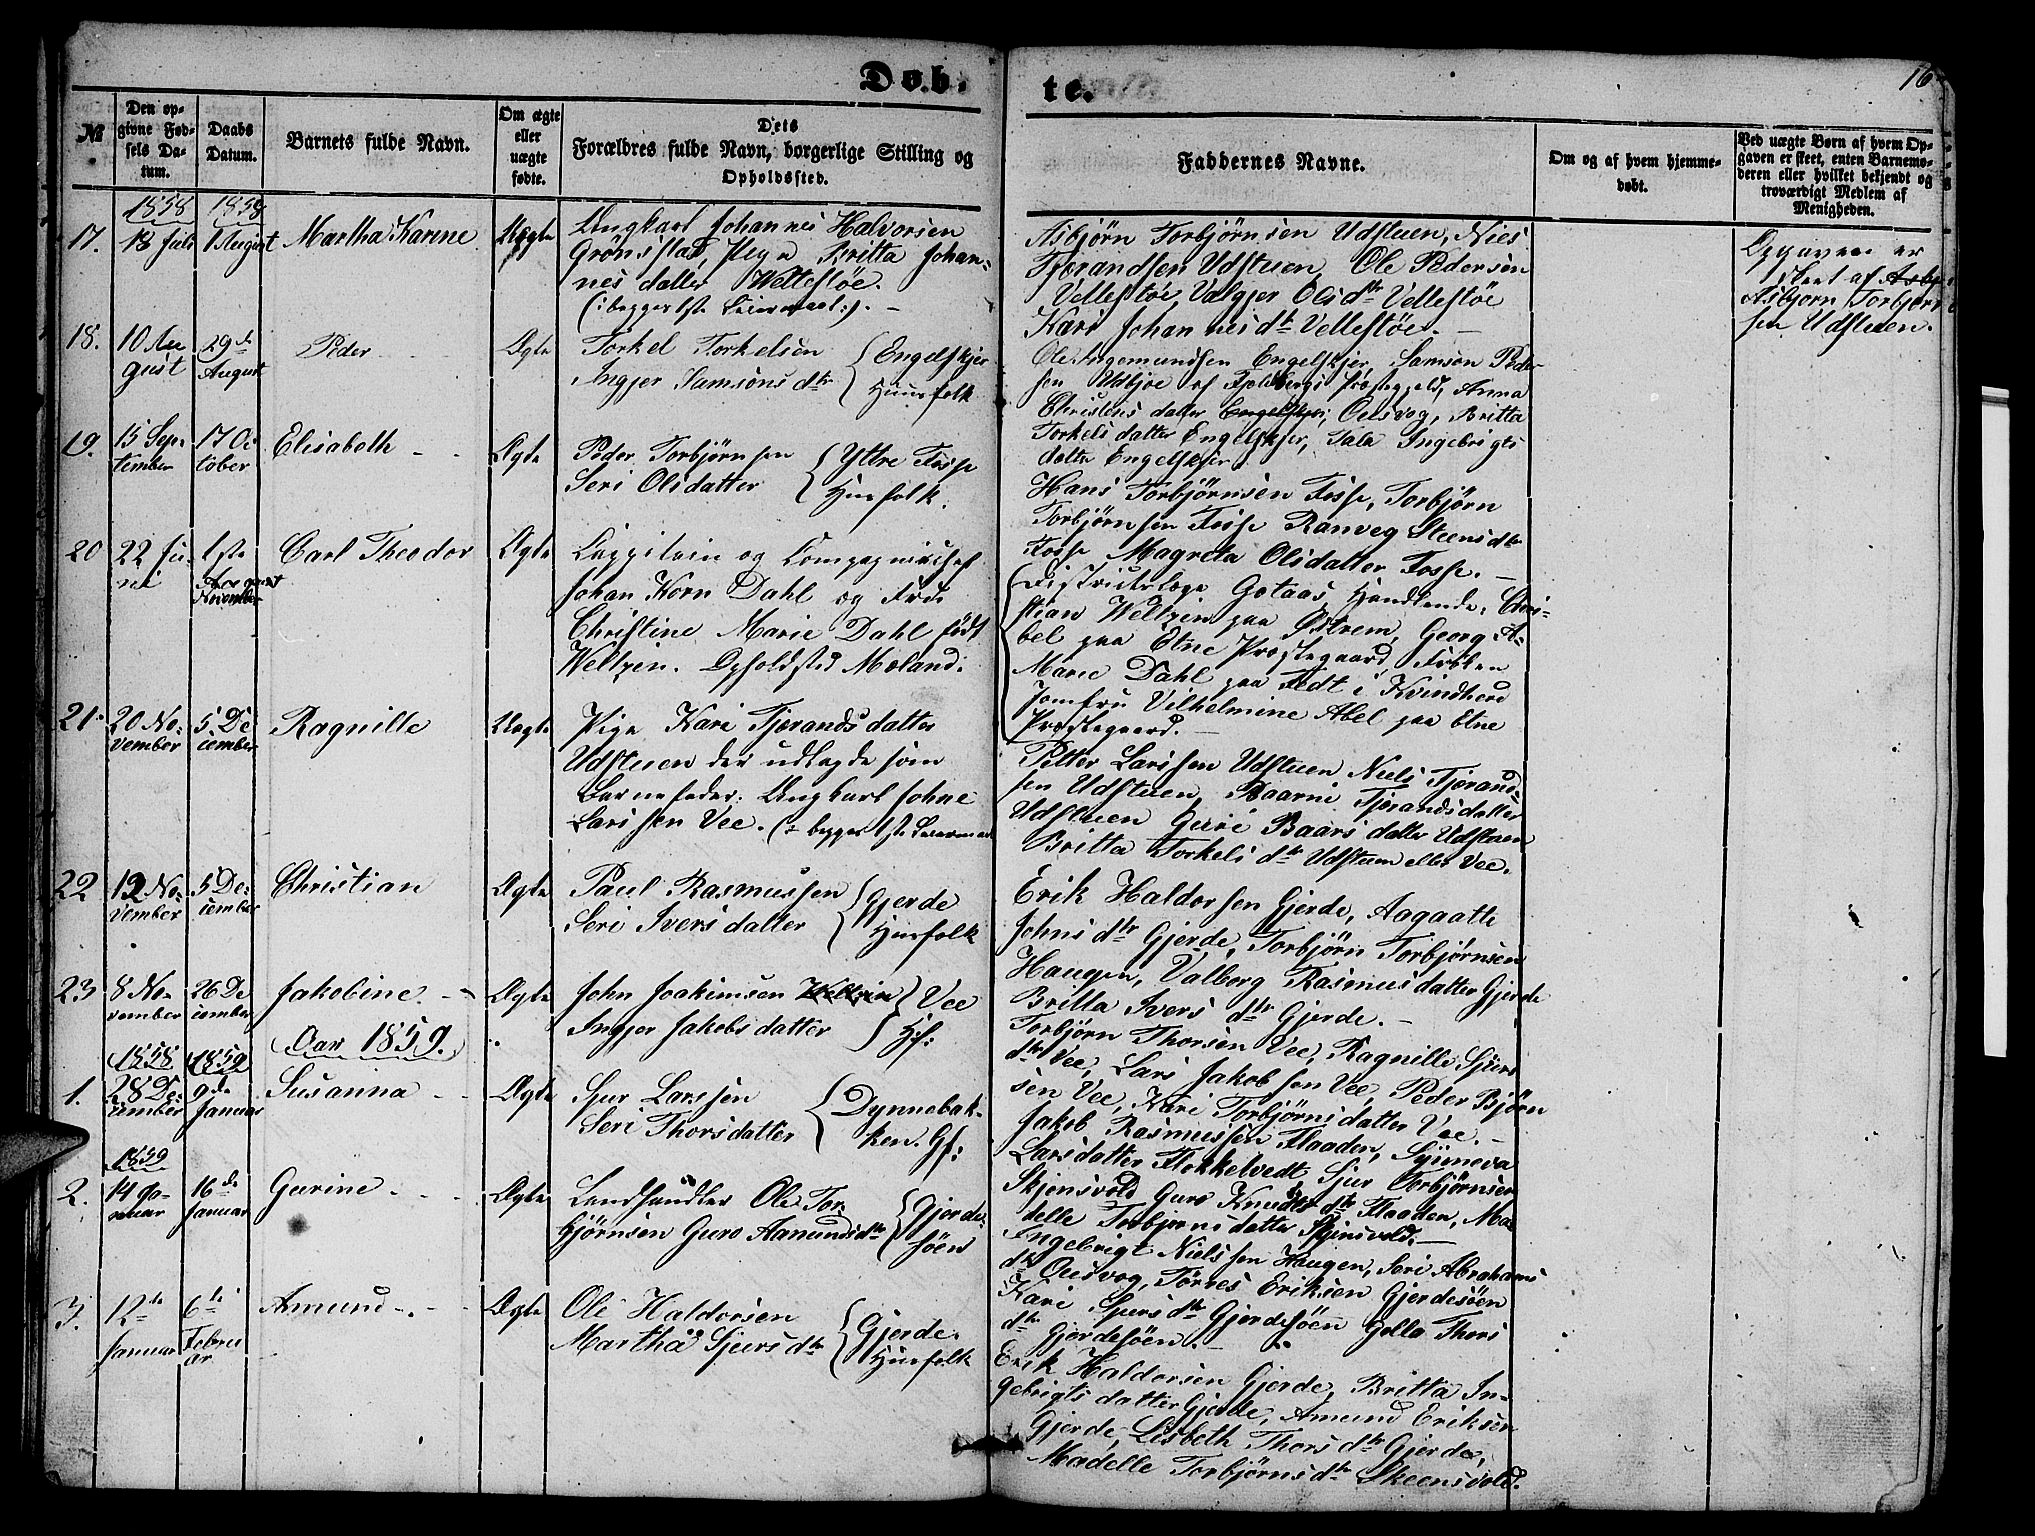 Døb.
te.
16
№
Den op-
givne Fød-
sels Da-
tum.
Daabs
Datum.
Barnets fulde Navn.
Om ægte
eller
uægte
fødte.
Dets
Forældres fulde Navn, borgerlige Stilling og
Opholdssted.
Faddernes Navne.
Om og af hvem hjemme-
døbt.
Ved uægte Børn af hvem Op-
gaven er skeet, enten Barnemo-
deren eller hvilket bekjendt og
troværdigt Medlem af
Menigheden.
1858
1858
17.
18 Juli
1 August
Martha Karine
Uægte
Ungkarl Johannes Halvorsen
Grønstad, Pign Britta Johan-
nes datter Wellestøe.
(: begges 1ste Leiermaal :). -
Asbjörn Torbjörnsen Udstuen, Niels
Tjerandsen Udstuen, Ole Pedersen
Vellestöe, Valgjer Olsdtr Vellestöe
Kari Johannesdtr Vellestöe. -
Opgaven er
skeet af Asbj
Asbjorn Torbjörn
sen Udstuen.
18.
10 Au
gust
29de
August
Peder
Ægte
Torkel Torkelsen
Ingjer Samsons dtr
Engelskjer
Huusfolk
Ole Ingemundsen Engelskjer, Samson Peder
sen Udbjoe af Fjeldbergs Præstegjeld, Anna
Christens datter Engelskjer, Oelsvog, Britta
Torkels datter Engelskjer, Sala Ingebrigts
datter Engelskjer.
19.
15 Sep-
tember
17 Oc
tober
Elisabeth
Ægte
Peder Torbjörnsen
Seri Olsdatter
Yttre Fosse
Huusfolk.
Hans Torbjörnsen Fosse, Torbjörn
Torbjörnsen Fosse Ranveg Steensdtr
Fosse Magreta Olsdatter Fosse. -
20
22 Ju-
ni
1ste
August
November
Carl Theodor
Ægte
Cappitain og Compagnichef
Johan Korn Dahl og Frue
Christine Marie Dahl född
Weltzin. Opholdsted Moland.
Districtslæge Gotaas, Handlende Chri-
stian Weltzin paa Østrem, Georg A-
bel paa Etne Præstegaard, Fröken
Marie Dahl paa Fedt i Kvindherd
Jomfru Vilhelmine Abel paa Etne
Præstegaard. -
21.
20 No-
vember
5 De
cember
Ragnille
Uægte
Pige Kari Tjerandsdatter
Udstuen der udlagde som
Barnefader: Ungkarl Johne
Larssen Vee. (: begges 1ste Leiermaal
Petter Larssen Udstuen Niels Tjerand-
sen Udstuen, Baarni Tjerandsdatter
Udstuen Guri Baars datter Udstuen
Britta Torkels dtr Udstuen eller Vee.
22
12 No-
vember
5 De-
cember
Christian
Ægte
Paul Rasmussen
Seri Iversdatter
Gjerde
Huusfolk
Erik Haldorsen Gjerde, Aagaatte
Johns dtr Gjerde, Torbjörn Torbjörnsen
Haugen, Valborg Rasmusdatter Gjerde
Britta Ivers dtr Gjerde. -
23
8 No-
vember
26 De
cember
Jakobine.
Ægte
John Joakimsen Weltzin
Ingjer Jakobsdatter
Vee
Hf:
Torbjörn Thorsen Vee, Ragnille Sjurs
dtr Vee, Lars Jakobsen Vee, Peder Björn
sen Vee, Kari Torbjörnsdatter Vee. -
Aar 1859.
1858
1859
1.
28 De-
cember
9de
Januar
Susanna
Ægte
Sjur Larssen
Seri Thorsdatter
Dynnebak-
ken. Gf:
Jakob Rasmussen Flaaden, Synneva
Larsdatter Flokkelvedt Sjur Torbjörnsen
Skjensvold Guro Knuds dtr Flaaden, Ma
delle Torbjørnsdatter Skjensvold. -
1859
2.
14 Ja-
nuar
16de
Januar
Gurine
Ægte
Landhandler Ole Tor-
björnsen Guro Aamunds dtr
Gjerde-
söen
Ingebrigt Nielssen Haugen, Seri Abrahams
dtr Oelsvog, Törres Eriksen Gjerdesöen
Kari Sjurs dtr Gjerdesöen Golla Thors
dtr Gjerdesöen. -
3.
12te
Januar
6te
Februar
ar
Amund
Ægte
Ole Haldorsen
Martha Sjurs dtr
Gjerde.
Huusfolk
Erik Haldorsen Gjerde, Britta In-
gebrigts datter Gjerde, Amund Eriksen
Gjerde, Lisbeth Thors dtr Gjerde,
Madelle Torbjørns dtr Skeensvold.